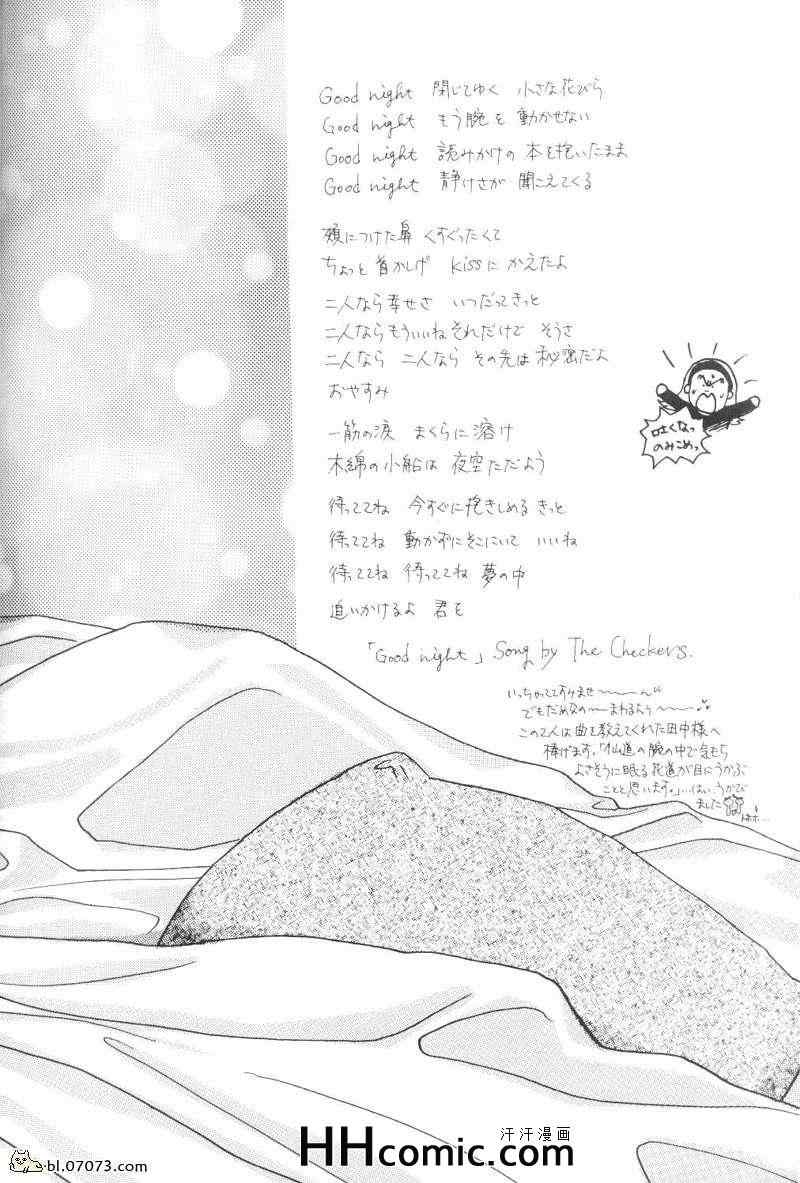 Good night 閉じてゆく 小さな花びら
Good night もう腕を動かせない
Good night 読みかけの本を抱いたまま
Good night 静けさが聞こえてくる
頬につけた鼻 くすぐったくて
ちょっと首かしげ Kissにかえたよ
二人なら幸せさ いつだってきっと
二人ならもういいね それだけで そうさ
二人なら 二人なら その先は秘密だよ
おやすみ
一筋の涙 まくらに溶け
木綿の小船は 夜空ただよう
待っててね 今すぐに抱きしめる きっと
待っててね 動かずにそこにいて いいね
待っててね 待っててね 夢の中
追いかけるよ 君を
「Good night」 Song by The Checkers.
吐くなっ
のみこめっ
いっちゃっててすみませ〜〜〜ん
でもだめなの〜まわるよう〜〜
この2人は曲を教えてくれた田中様へ
捧げます。「仙道の腕の中で気もち
よさそうに眠る花道が目にうかぶ
ことと思います。」…はい、うかび
ました
汗汗漫画
HHcomic.com
bl.07073.com